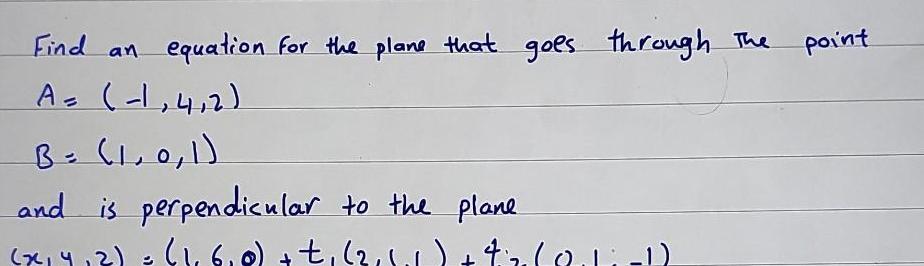 Find an equation for the plane that goes through The point
A = (-1, 4, 2)
B = (1, 0, 1)
and is perpendicular to the plane
(x, y, z) = (1, 6, 0) + t₁(2, 1, 1) + t₂(0, 1, -1)